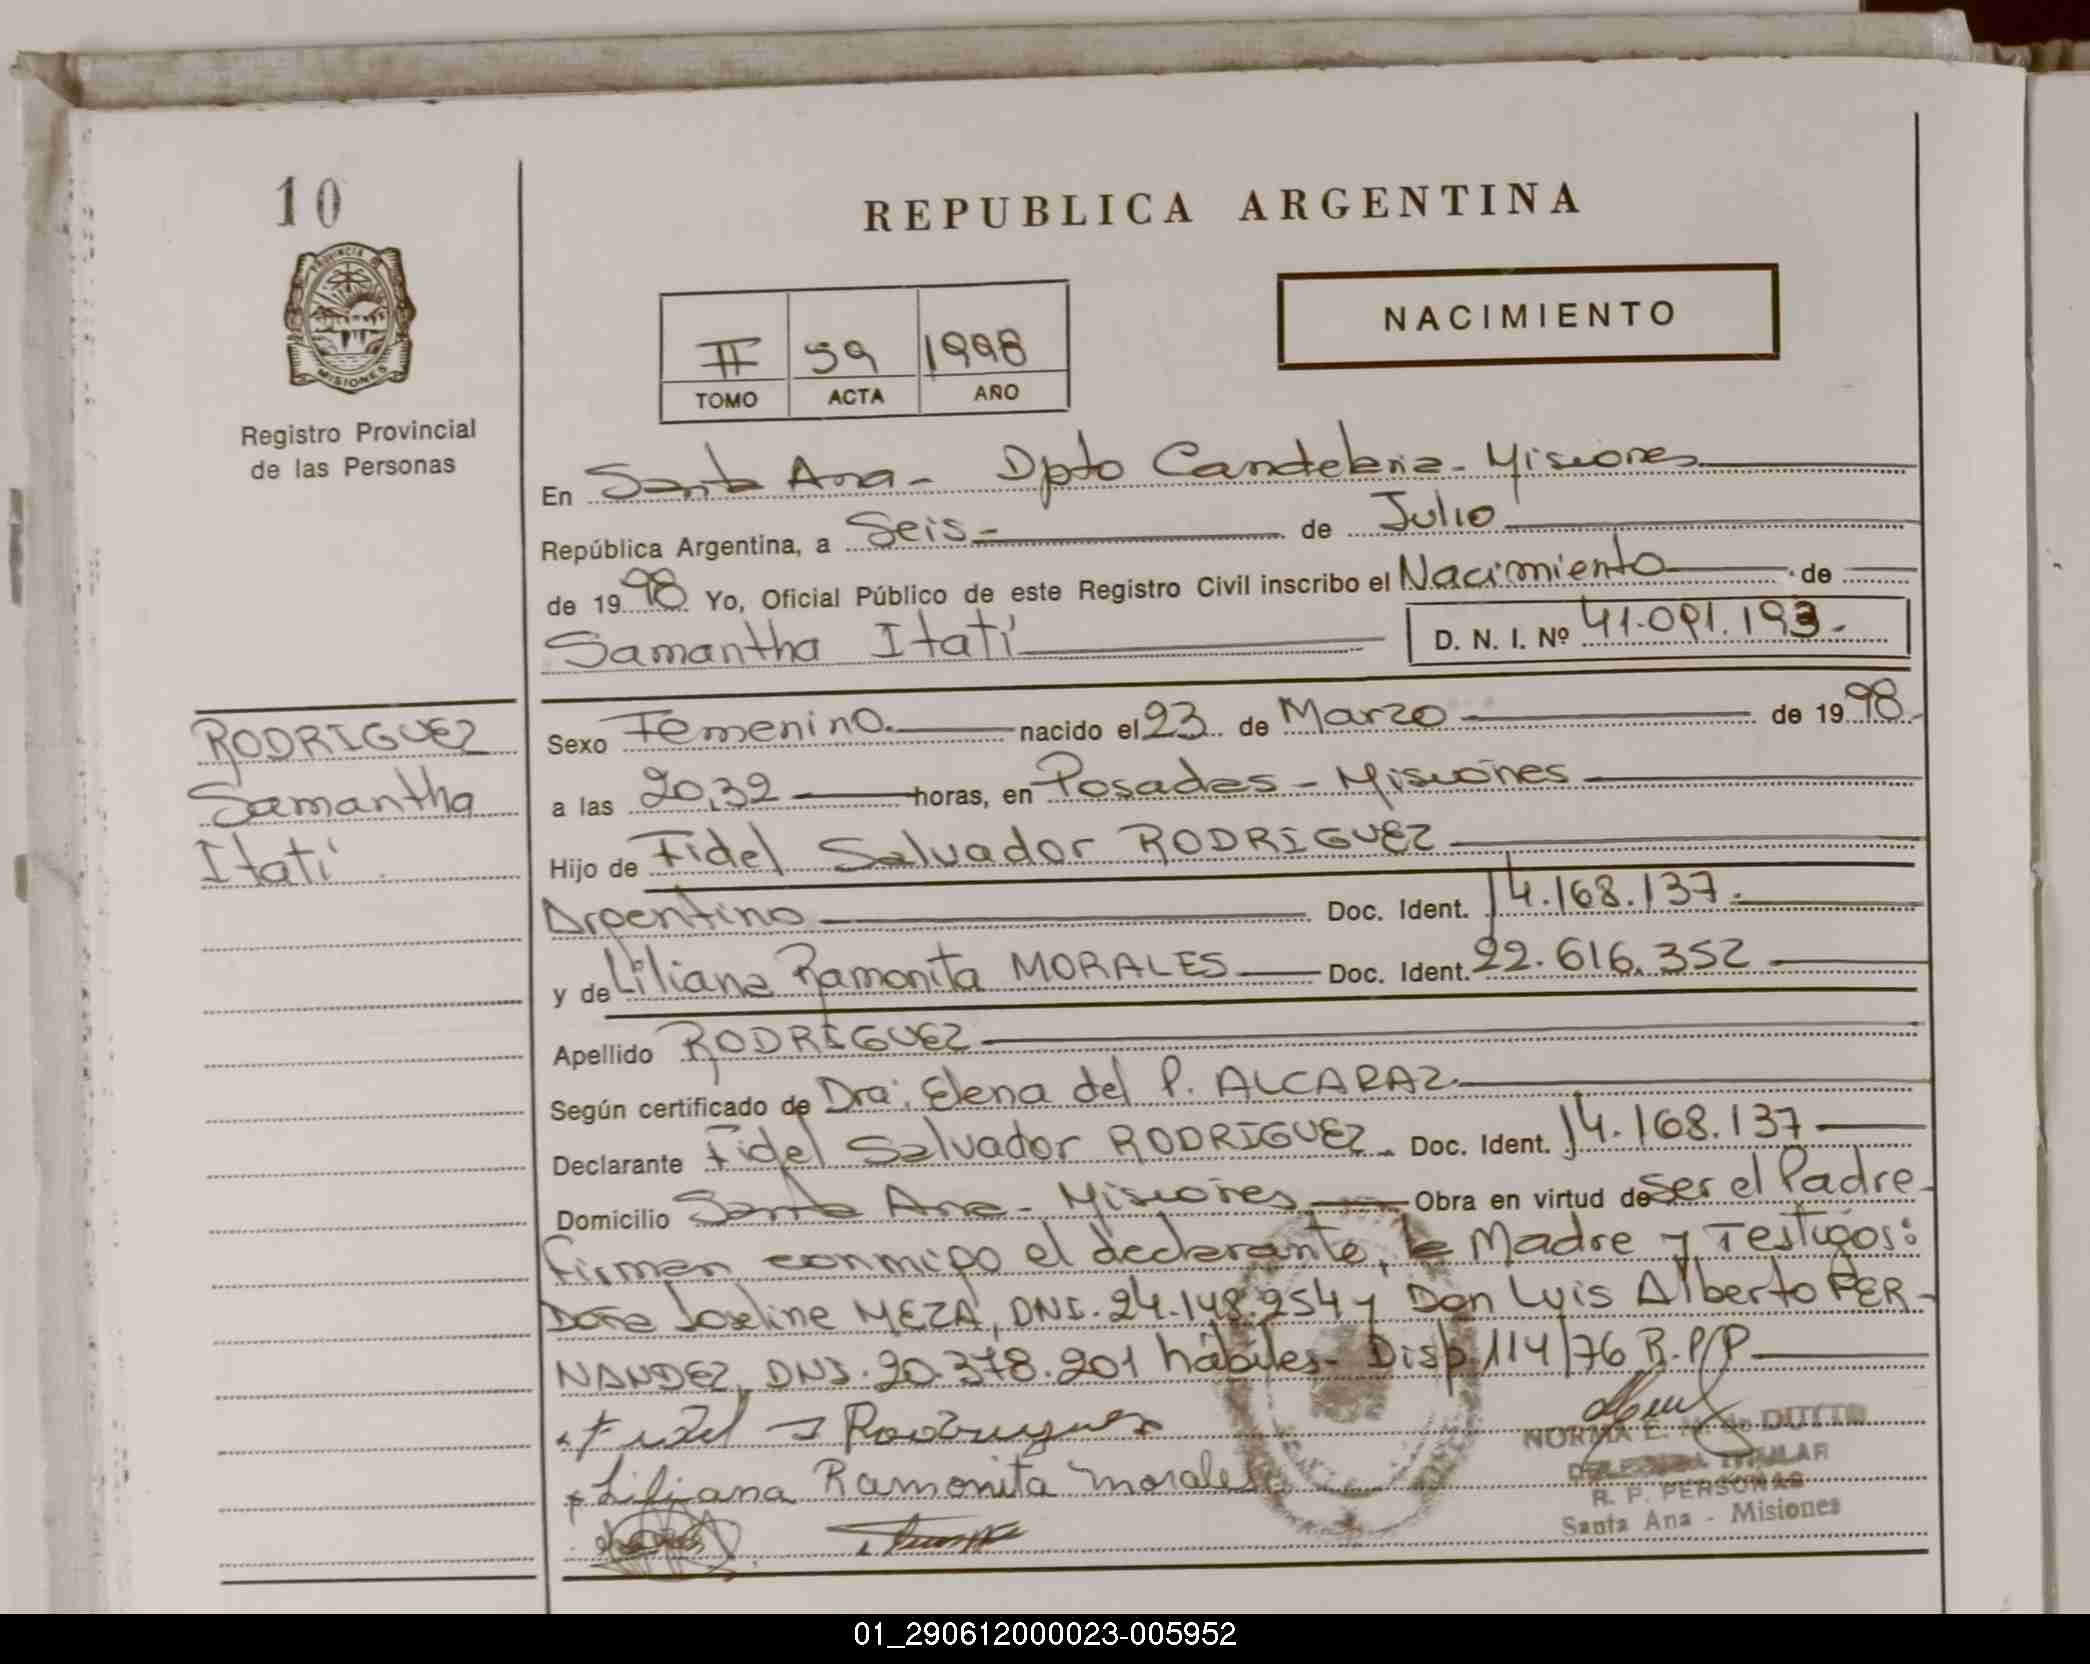 10
PROVINCIA DE
MISIONES
Registro Provincial
de las Personas
REPUBLICA ARGENTINA
II 59 1998
TOMO ACTA AÑO
NACIMIENTO
En Santa Ana - Dpto Candelaria - Misiones
República Argentina, a Seis - de Julio
de 1998 Yo, Oficial Público de este Registro Civil inscribo el Nacimiento de
Samantha Itatí D. N. I. Nº 41.091.193.-
RODRIGUEZ
Samantha
Itatí
Sexo Femenino. nacido el 23 de Marzo de 1998.-
a las 20,32 horas, en Posadas - Misiones
Hijo de Fidel Salvador RODRIGUEZ
Argentino Doc. Ident. 14.168.137.
y de Liliana Ramonita MORALES Doc. Ident. 22.616.352
Apellido RODRIGUEZ
Según certificado de Dra: Elena del P. ALCARAZ
Declarante Fidel Salvador RODRIGUEZ - Doc. Ident. 14.168.137
Domicilio Santa Ana - Misiones Obra en virtud de Ser el Padre-
firman conmigo el declarante, la Madre y Testigos:
Doña Joseline MEZA, DNI. 24.148.254 y Don Luis Alberto FER-
NANDEZ, DNI. 20.378.201 hábiles - Disp. 114/76 R.P/P
Fidel S Rodriguez
Liliana Ramonita Morales
NORMA E. de
TITULAR
R. P. PERSONAS
Santa Ana - Misiones
01_290612000023-005952